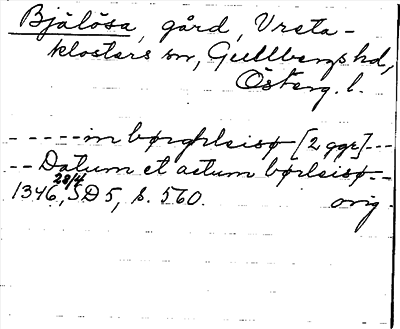 Bjälösa, gård, Vreta-
klosters sn, Gullbergs hd,
Österg. l.
- - - - - in børghleisø [2 ggr] - - -
- - Datum et actum børleisø - -
1346 28/4, SD 5, s. 560. orig.